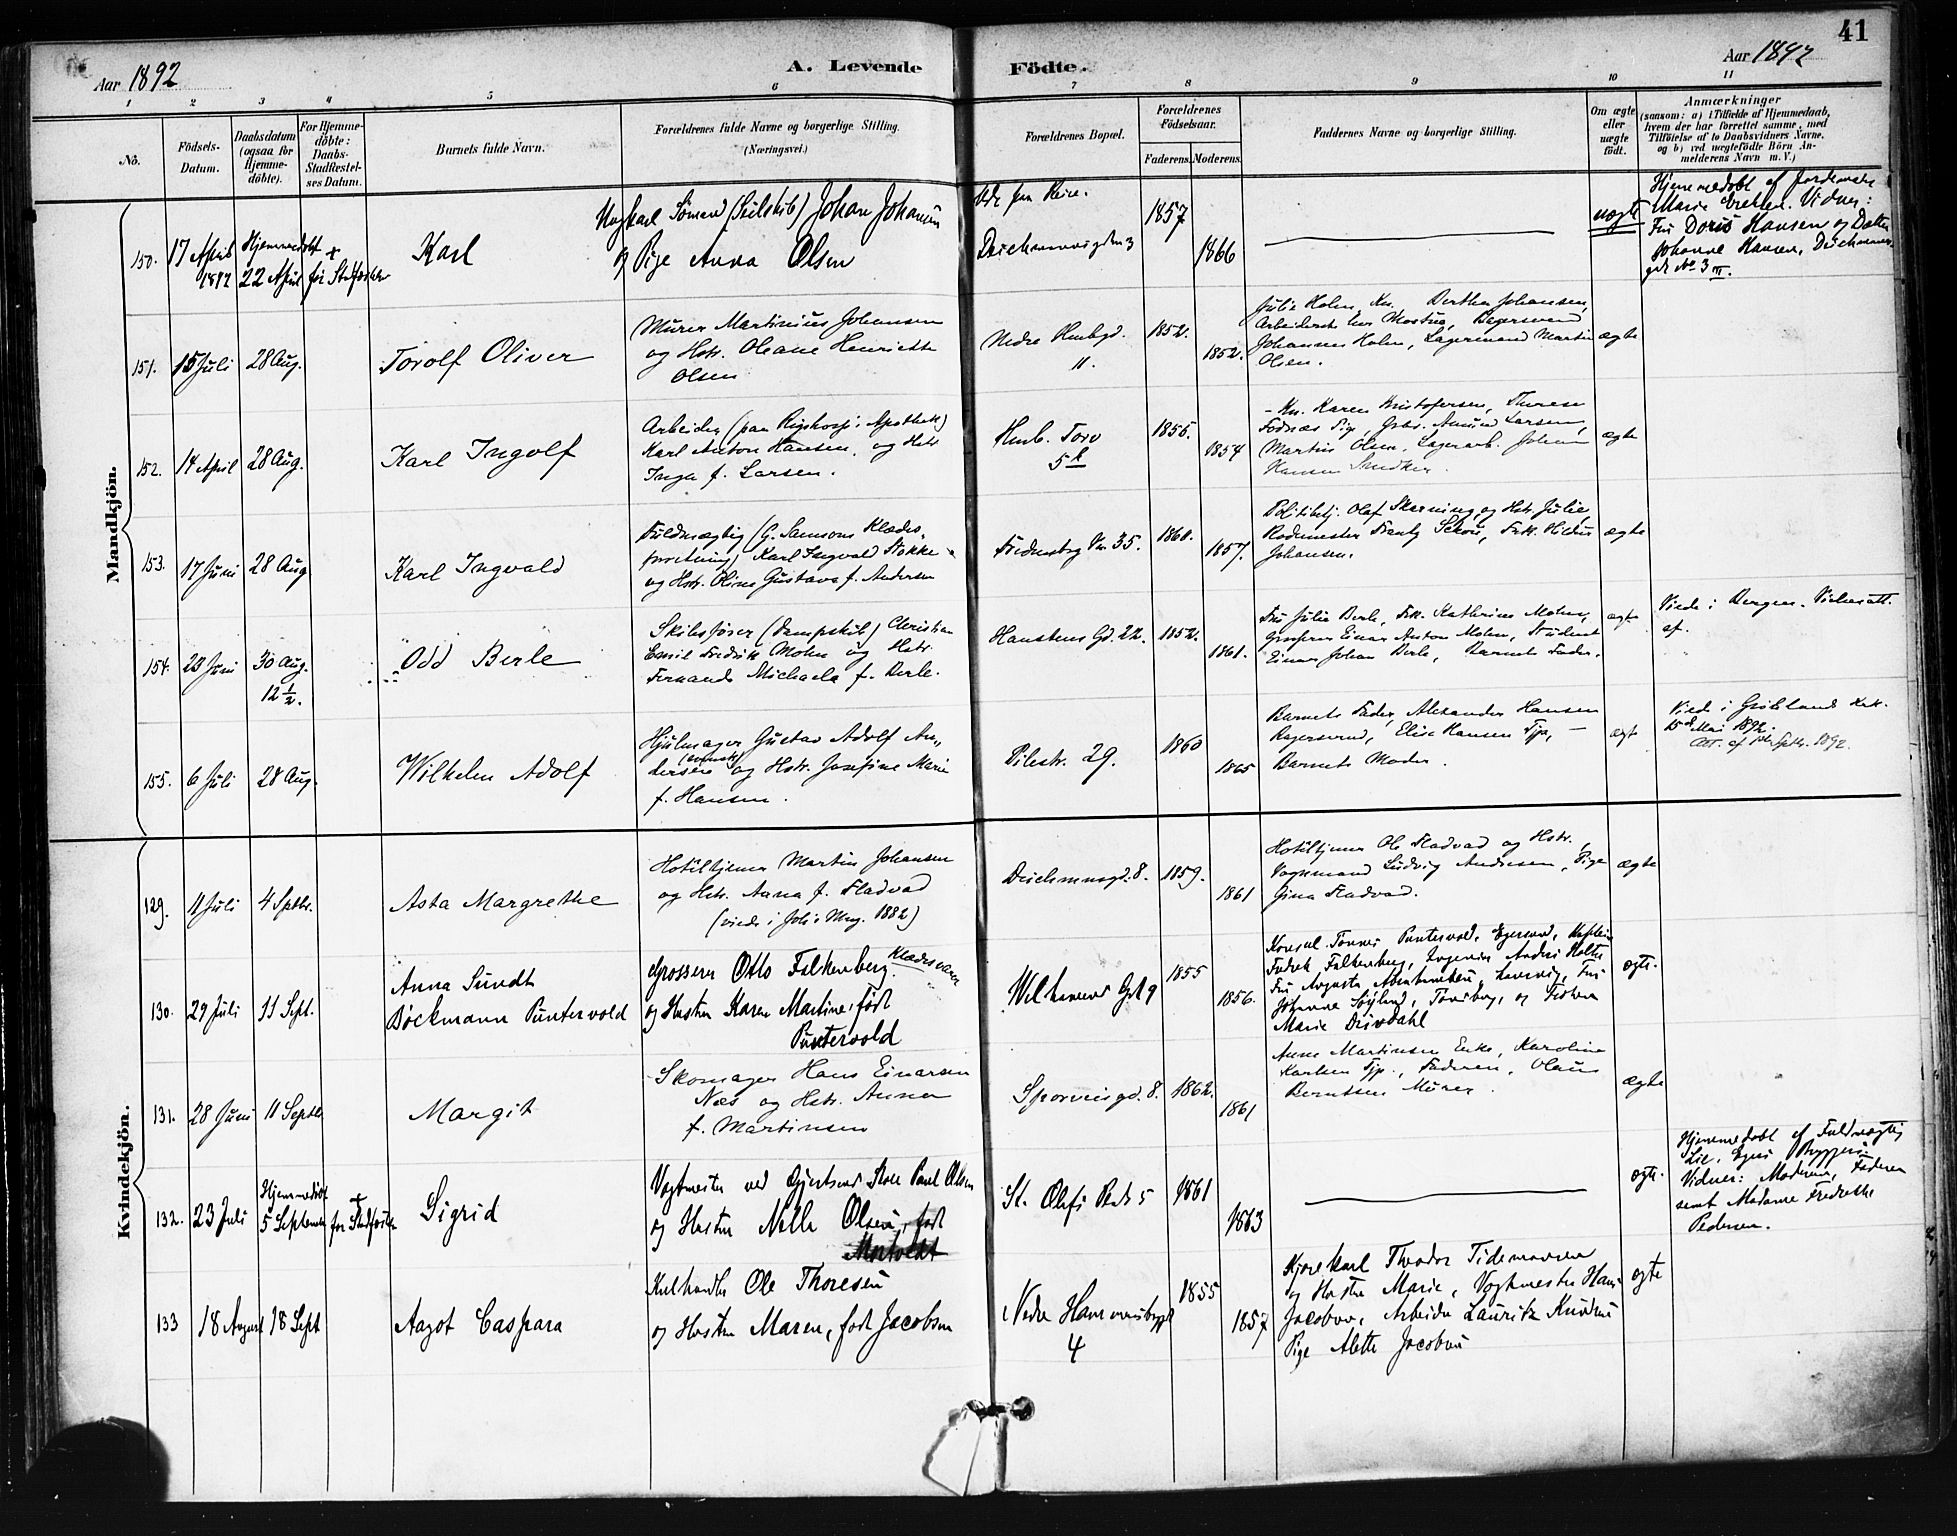 41
Aar 1892
A. Levende Födte.
Aar 1892
1 2 3 4 5 6 7 8 9 10 11
No.
Födsels-
Datum.
Daabsdatum
(ogsaa for
Hjemme-
döbte).
For Hjemme-
döbte:
Daabs-
Stadfæstel-
ses Datum.
Barnets fulde Navn.
Forældrenes fulde Navne og borgerlige Stilling.
(Næringsvei.)
Forældrenes Bopæl.
Forældrenes
Födselsaar.
Faderens. Moderens.
Faddernes Navne og borgerlige Stilling.
Om ægte
eller
uægte
födt.
Anmærkninger
(saasom: a) i Tilfælde af Hjemmedaab,
hvem der har forrettet samme, med
Tilföielse af to Daabsvidners Navne,
og b) ved uægtefödte Börn An-
melderens Navn m. V.)
Mandkjön.
150. 17 April 1892
Hjemmedøbt
22 April
+
før Stadfæstelse
Karl
Sømand (Seilskib) Johan Johansen
og Pige Anna Olsen
Ude paa Reise.
Deichmansgden 3
1857
1866
uægte
Hjemmedøbt af Jordemoder
Marie Vidner:
Fru Doris Hansen og Datter
Johanne Hansen, Deichmans
gd. No 3 III.
151. 15 Juli 28 Aug.
Torolf Oliver
Murer Martinius Johansen
og Hstr. Oleane Henriette
Olsen
Nedre Hmbgd.
11.
1852.
1852.
Julie Holm Kn., Berthe Johansen,
Johannes Holm, Lagermand Martin
Olsen.
ægte
152. 14 April 28 Aug.
Karl Ingolf
Arbeider (paa Rigshosp. Apothek)
Karl Anton Hansen, og Hstr.
Inga f. Larsen.
Hmb. Torv
5
1856.
1854
Kn. Karen Kristofersen, Therese
Pige, Amund Larsen,
Martin Olsen, Lagerarb. Johan
Hansen Snedker.
ægte
153. 17 Juni 28 Aug
Karl Ingvald
Fuldmægtig (G. Samsons Klædes-
forretning) Karl Ingvald Stokke
og Hstr. Oline Gustava f. Andersen
Fredensborg Vn 35.
1860.
1857.
Politibetj. Olaf Skarning og Hstr. Julie,
Rodemester Frantz Schou, Frk. Hildur
Johansen.
ægte
154. 23 Juni 30 Aug.
12 1/2.
Odd Berle
Skibsfører (Dampskib) Christian
Emil Fredrik Mohn og Hstr.
Fernanda Michaela f. Berle.
Hansteens Gd. 22.
1852.
1861.
Fru Julie Berle, Frk. Kathrine Mohn,
Einar Anton Mohn, Student
Einar Johan Berle, Barnets Fader.
ægte
Viede i Bergen. Vielsesatt.
af.
155. 6 Juli 28 Aug.
Wilhelm Adolf
Hjulmager Gustav Adolf An-
dersen (svensk) og Hstr. Josefine Marie
f. Hansen.
Pilestr. 29.
1860
1865
Barnets Fader, Alexander Hansen
Bagersvend, Elise Hansen Tjp,
Barnets Moder.
ægte
Viede i Grønland Kirk.
15de Mai 1892.
Att. af Septr. 1892.
Kvindekjön.
129. 11 Juli 4 Septbr.
Asta Margrethe
Hoteltjener Martin Johansen
og Hstr. Anna f. Fladvad
(viede i Joh's Mng. 1882)
Deichmansgd. 8.
1859.
1861
Hoteltjener Ole Fladvad og Hstr.,
Vognmand Ludvig Andresen, Pige
Gina Fladvad.
ægte
130. 29 Juli 11 Sept.
Anna Sundt
Bøckmann Puntervold
Grosserer Otto Falkenberg Klædesvarer
og Hustru Karen Martine, født
Puntervold
Welhavens Gd 9
1855
1856.
Konsul Tønnes Puntervold, Egersund, Kaptein
Fredrik Falkenberg, Ingeniør Andres Holte
Fru Augusta Larvig, Fru
Johanne Søyland, Tønsberg, og Frøken
Marie Drivdahl
ægte.
131. 28 Juni 11 Septbr
Margit
Skomager Hans Einarsen
Næs og Hstr. Anna
f. Martinsen
Sporveisgd. 8.
1862.
1861
Anne Martinsen Enke, Karoline
Karlsen Tjp., Faderen, Olaus
Berntsen Murer.
ægte
132. 23 Juli
Hjemmedøbt
5 September
+
før Stadfæstelse
Sigrid
Vogtmester ved Gjertsens Skole Paul Olsen
og Hustru Nella Olsen, født
St. Olafs Plads 5
1861
1863
ægte.
Hjemmedøbt af Fuldmægtig
Lie, Bryggeri
Vidner: Moderen, Faderen
samt Madame Fredrikke
Pedersen.
133 18 August 18 Sept
Aagot Caspara
Kulhandler Ole Thoresen
og Hustru Maren, født Jacobsen
Nedre Hammersborggt
4
1855
1857
Kjørekarl Theodor Tidemansen
og Hustru Marie, Vogtmester Hans
Jacobsen, Arbeider Lauritz Knudsen
Pige Alette Jacobsen
ægte